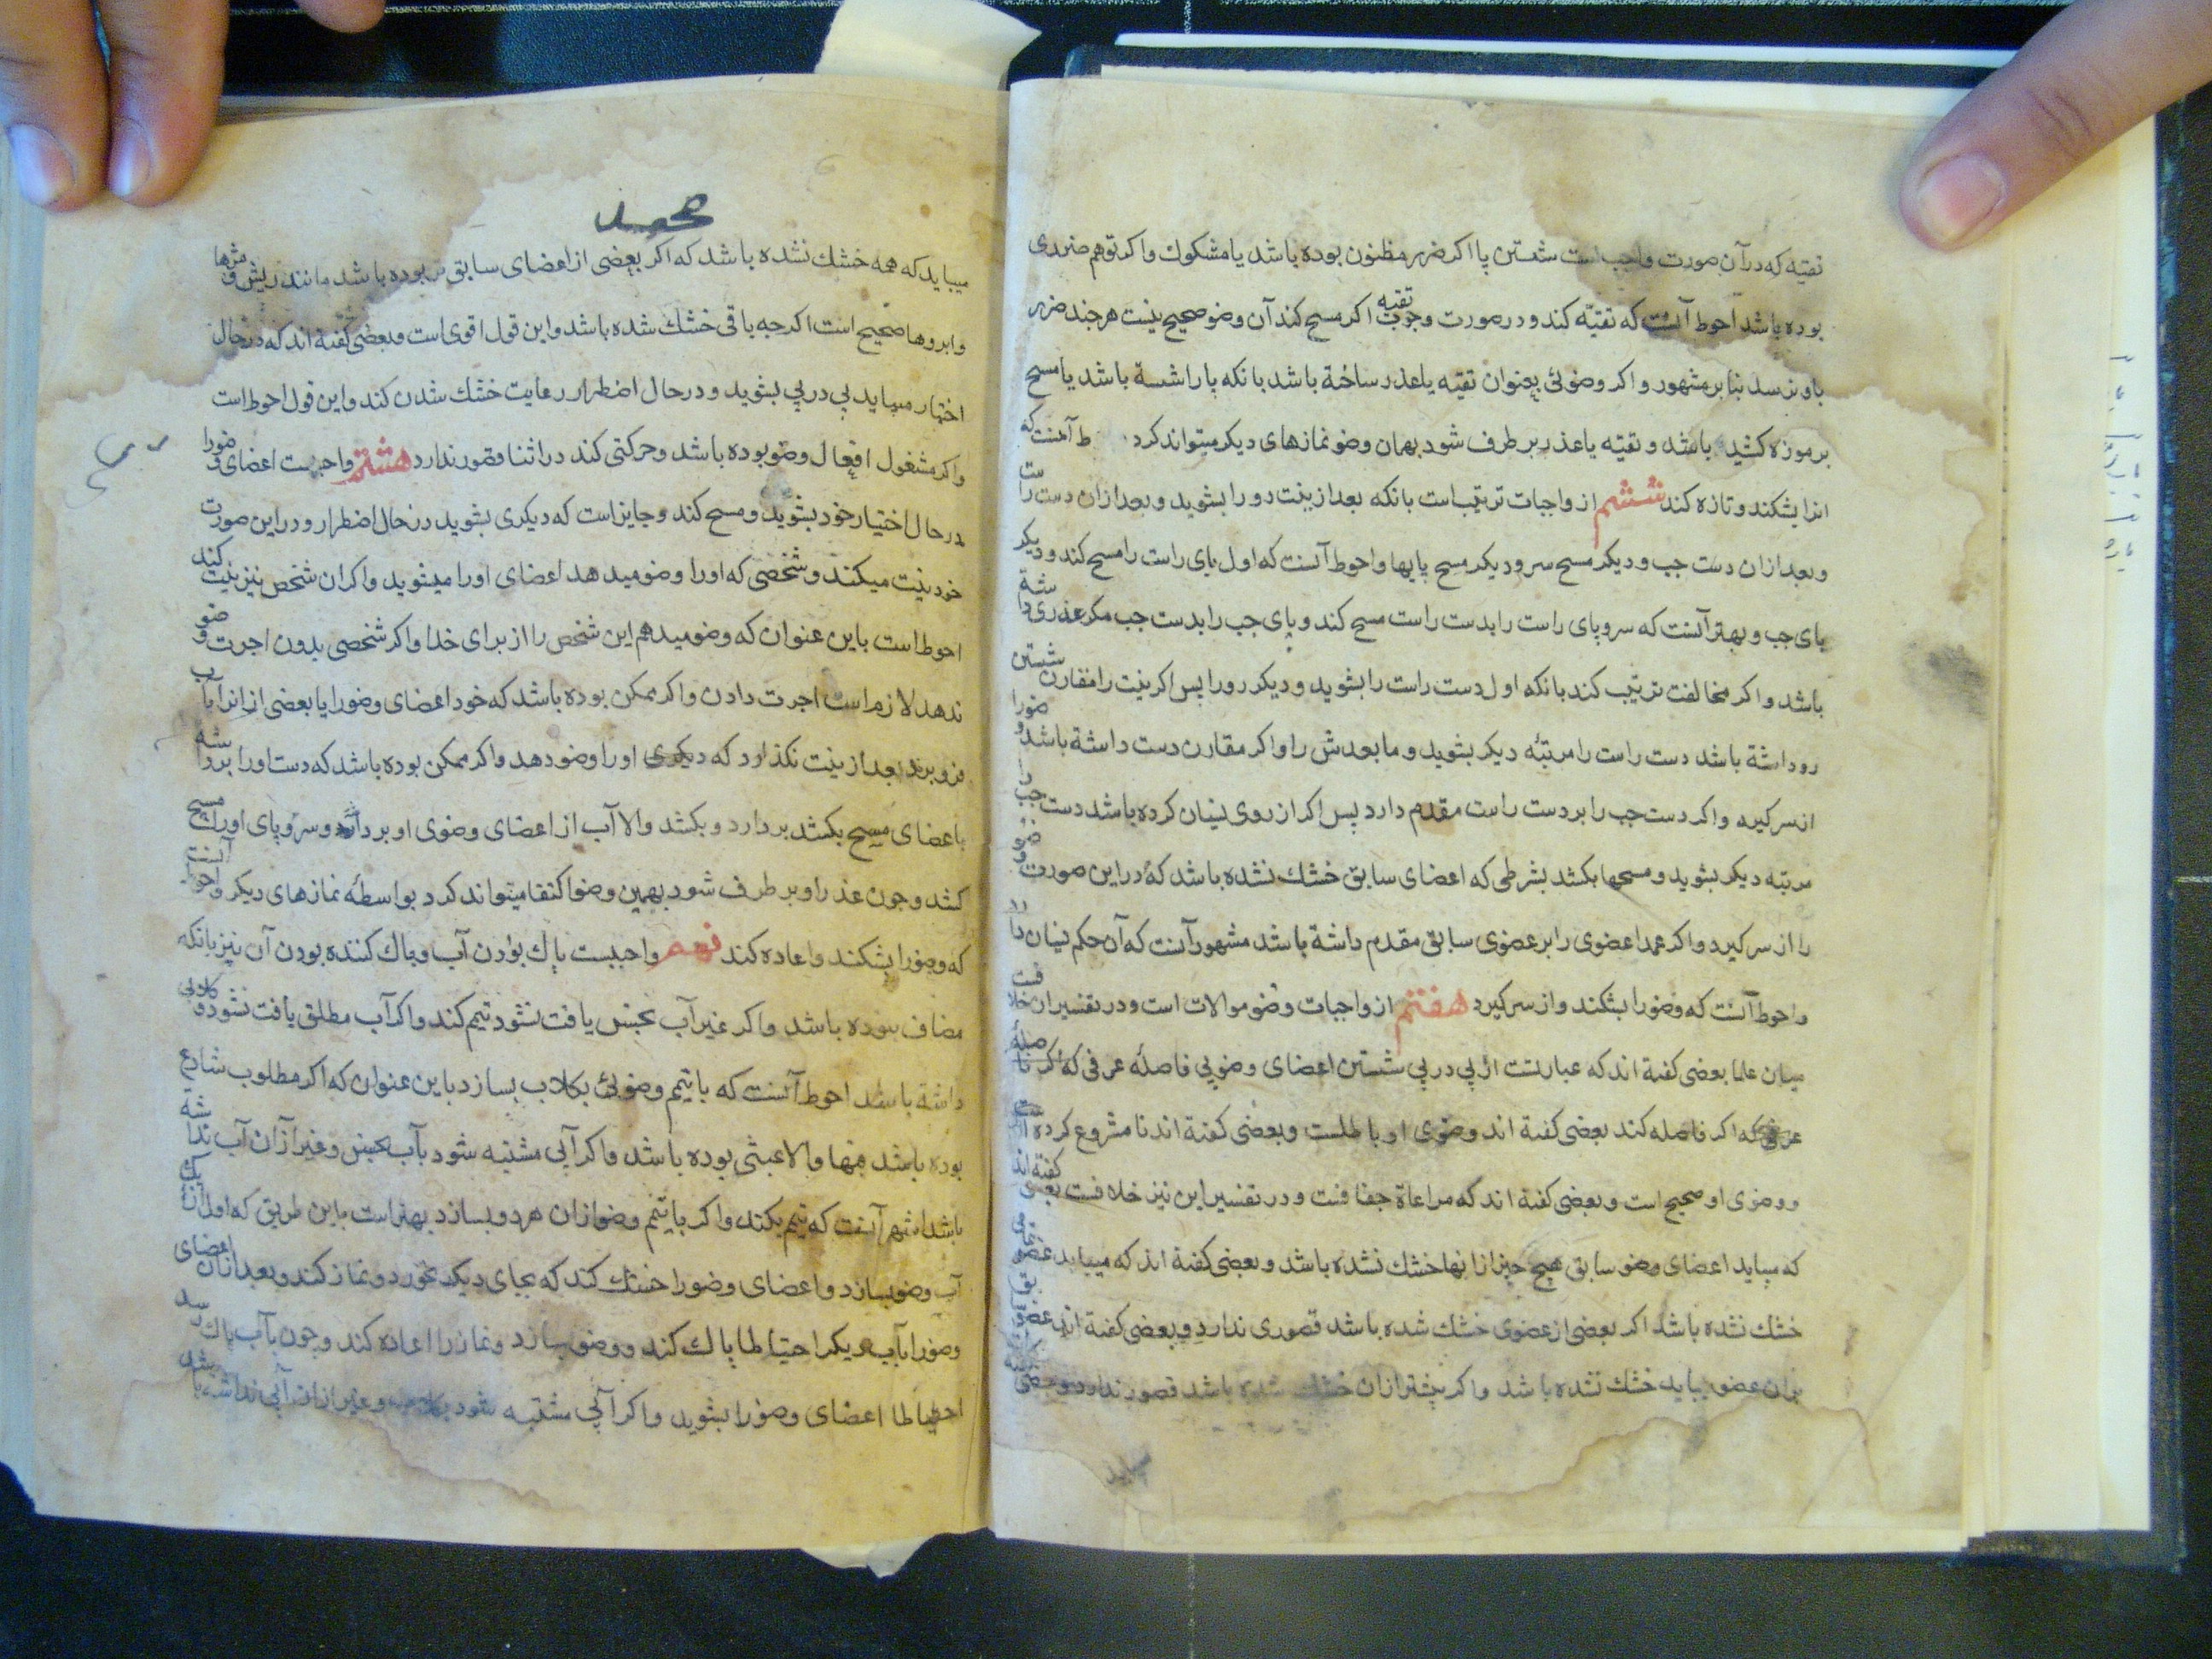 تقیه که در آن صورت واجب است شستن پا اکر ضرر مظنون بوده باشد یا مشکوك واکر توهم ضرری
بوده باشد احوط آنست که تقیّه کند و در صورت وجوب تقیه اکر مسح کند آن وضو صحیح نیست هرچند ضرر
باو نرسد بنا بر مشهور و اکر وضوئی بعنوان تقیّه یا عذر ساخته باشد بانکه پا را شسته باشد یا مسح
بر موزه کشیده باشد و تقیّه یا عذر بر طرف شود بهمان وضو نمازهای دیکر میتواند کرد آنست که
انرا بشکند و تازه کند ششم از واجبات ترتیب است بانکه بعد از نیت رو را بشوید و بعد از ان دست راست را
و بعد از ان دست چپ و دیکر مسح سر و دیکر مسح پایها و احوط آنست که اول پای راست را مسح کند و دیکر
پای چپ و بهتر آنست که سر و پای راست را بدست راست مسح کند و پای چپ را بدست چپ مکر عذری داشته
باشد و اکر مخالفت ترتیب کند بانکه اول دست راست را بشوید و دیکر رو را پس اکر نیت را مقارن شستن
رو داشته باشد دست راست را مرتبه دیکر بشوید و ما بعدش را و اکر مقارن دست داشته باشد وضو را
از سر کیرد و اکر دست چپ را بر دست راست مقدم دارد پس اکر از روی نسیان کرده باشد دست چپ را
مرتبه دیکر بشوید و مسحها بکشد بشرطی که اعضای سابق خشك نشده باشد که در این صورت وضو
را از سر کیرد و اکر عمدا عضوی را بر عضوی سابق مقدم داشته باشد مشهور آنست که آن حکم نسیان دارد
و احوط آنست که وضو را بشکند و از سر کیرد هفتم از واجبات وضو موالات است و در تفسیر ان خلافست
میان علما بعضی کفته اند که عبارتست از پی در پی شستن اعضای وضو بی فاصلهٔ عرفی که اکر فاصلهٔ
عرفی که اکر فاصله کند بعضی کفته اند وضوی او باطلست و بعضی کفته اند نا مشروع کرده است
و وضوی او صحیح است و بعضی کفته اند که مراعاة جفافست و در تفسیر این نیز خلافست بعضی کفته اند
که میباید اعضای وضو سابق هیچ چیز از انها خشك نشده باشد و بعضی کفته اند که میباید عضو تمامی
خشك نشده باشد اکر بعضی از عضوی خشك شده باشد قصوری ندارد و بعضی کفته اند عضو سابق
بران عضو میباید خشك نشده باشد و اکر پیشتر از ان خشك شده باشد قصور ندارد و بعضی
محمد
میباید که همه خشك نشده باشد که اکر بعضی از اعضای سابق تر بوده باشد مانند ریش و مژها
و ابروها صحیح است اکرچه باقی خشك شده باشد و این قول اقوی است و بعضی کفته اند که در حال
اختیار میباید پی در پی بشوید و در حال اضطرار رعایت خشك شدن کند و این قول احوط است
و اکر مشغول افعال وضو بوده باشد و حرکتی کند در اثنا قصور ندارد هشتم واجبست اعضای وضو را
در حال اختیار خود بشوید و مسح کند و جایز است که دیکری بشوید در حال اضطرار و در این صورت
خود نیت میکند و شخصی که او را وضو میدهد اعضای او را میشوید و اکر ان شخص نیز نیت کند
احوط است باین عنوان که وضو میدهم این شخص را از برای خدا و اکر شخصی بدون اجرت وضو
ندهد لازم است اجرت دادن و اکر ممکن بوده باشد که خود اعضای وضو را یا بعضی از انرا بآب
فرو برد بعد از نیت نکذارد که دیکری او را وضو دهد و اکر ممکن بوده باشد که دست او را برداشته
باعضای مسح بکشد بردارد و بکشد والا آب از اعضای وضوی او بردارد و سر و پای او را مسح
کشد و چون عذر او بر طرف شود بهمین وضو اکتفا میتواند کرد بواسطهٔ نمازهای دیکر و احوط آنست
که وضو را بشکند و اعاده کند نهم واجبست پاك بودن آب و پاك کننده بودن آن نیز بانکه
مضاف نبوده باشد و اکر غیر آب نجس یافت نشود تیمم کند و اکر آب مطلق یافت نشود و کلابی
داشته باشد احوط آنست که با تیمم وضوئی بکلاب بسازد باین عنوان که اکر مطلوب شارع
بوده باشد فبها والا عبثی بوده باشد و اکر آبی مشتبه شود بآب نجس و غیر از آن آب نداشته
باشد اشهر آنست که تیمم بکند و اکر با تیمم وضو از ان هر دو بسازد بهتر است باین طریق که اول از یك
آب وضو بسازد و اعضای وضو را خشك کند که بجای دیکر نخورد و نماز کند و بعد از ان اعضای
وضو را بآب دیکر احتیاطا پاك کند و وضو بسازد و نماز را اعاده کند و چون بآب پاك رسد
احتیاطا اعضای وضو را بشوید و اکر آبی مشتبه شود و غیر از ان آبی نداشته باشد